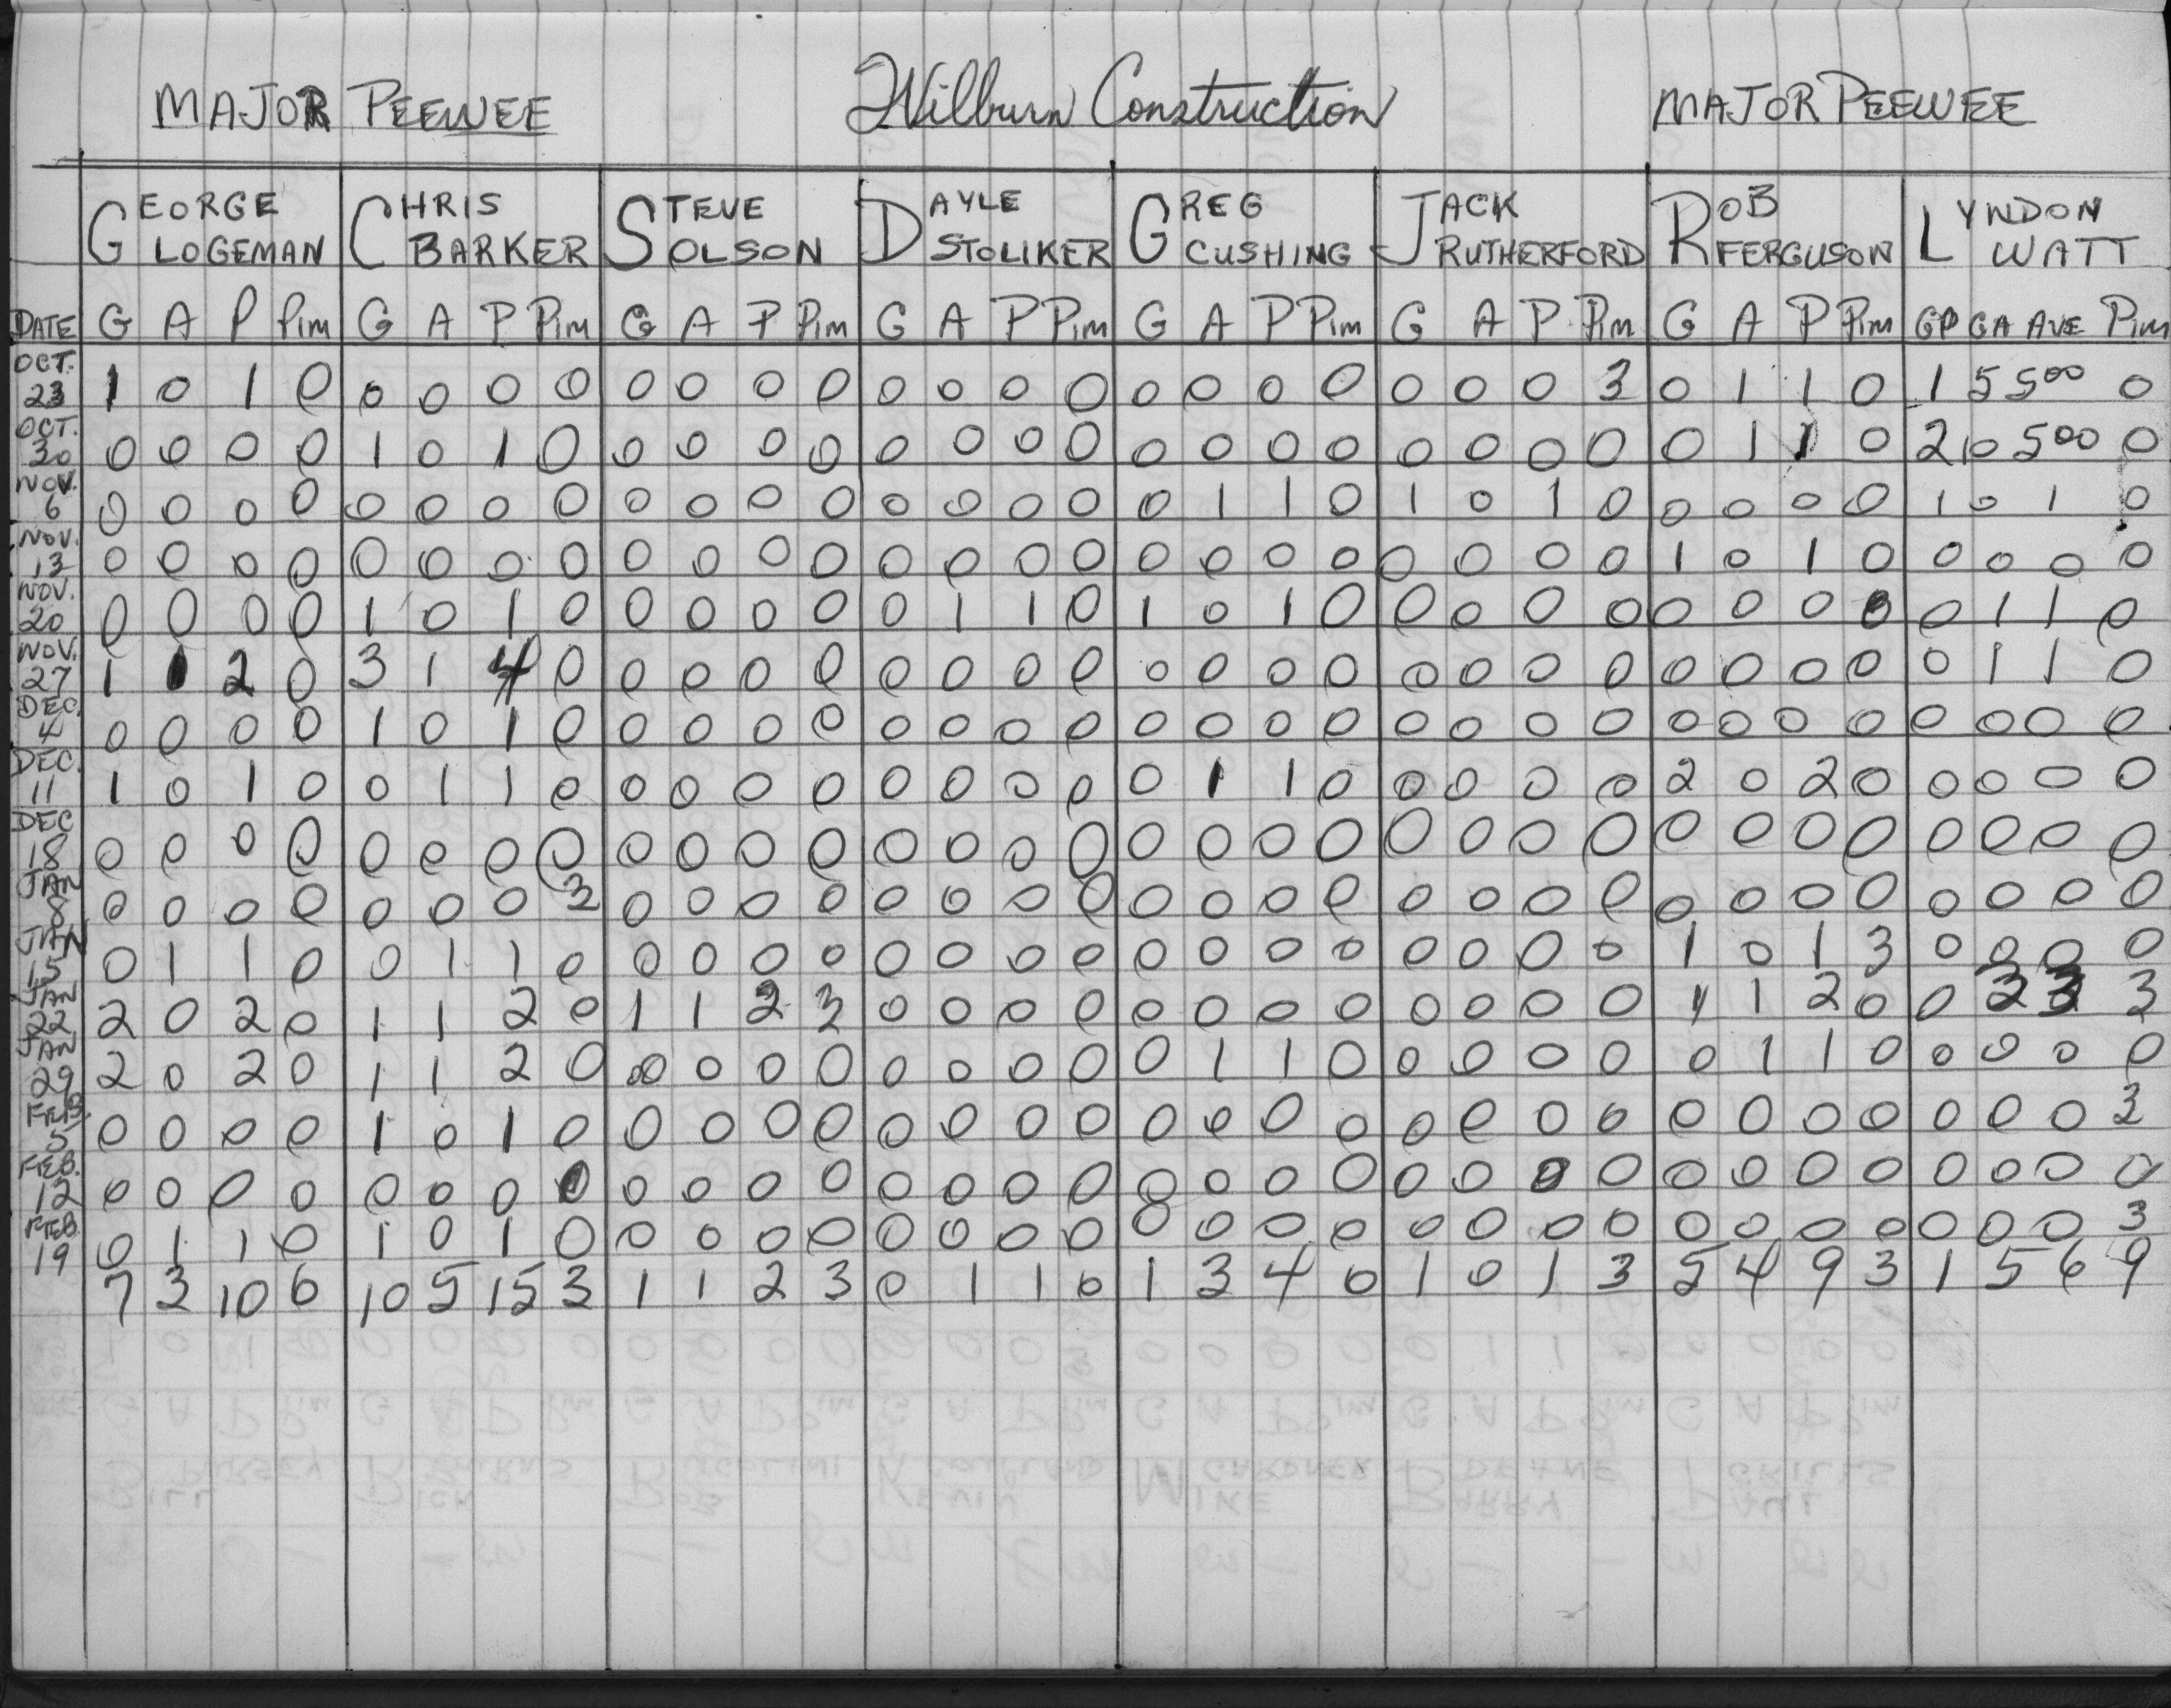 MAJOR PEEWEE Wilburn Construction MAJOR PEEWEE
GEORGE CHRIS STEVE DAYLE GREG JACK ROB LYNDON
LOGEMAN BARKER OLSON STOLIKER CUSHING RUTHERFORD FERGUSON WATT
DATE G A P Pim G A P Pim G A P Pim G A P Pim G A P Pim G A P Pim G A P Pim GP GA AVE Pim
OCT. 23 1 0 1 0 0 0 0 0 0 0 0 0 0 0 0 0 0 0 0 0 0 0 0 3 0 1 1 0 1 5 5.00 0
OCT. 30 0 0 0 0 1 0 1 0 0 0 0 0 0 0 0 0 0 0 0 0 0 0 0 0 0 1 1 0 2 10 5.00 0
NOV. 6 0 0 0 0 0 0 0 0 0 0 0 0 0 0 0 0 0 1 1 0 1 0 1 0 0 0 0 0 1 0 1 0
NOV. 13 0 0 0 0 0 0 0 0 0 0 0 0 0 0 0 0 0 0 0 0 0 0 0 0 1 0 1 0 0 0 0 0
NOV. 20 0 0 0 0 1 0 1 0 0 0 0 0 0 1 1 0 1 0 1 0 0 0 0 0 0 0 0 0 0 1 1 0
NOV. 27 1 1 2 0 3 1 4 0 0 0 0 0 0 0 0 0 0 0 0 0 0 0 0 0 0 0 0 0 0 1 1 0
DEC. 4 0 0 0 0 1 0 1 0 0 0 0 0 0 0 0 0 0 0 0 0 0 0 0 0 0 0 0 0 0 0 0 0
DEC. 11 1 0 1 0 0 1 1 0 0 0 0 0 0 0 0 0 0 1 1 0 0 0 0 0 2 0 2 0 0 0 0 0
DEC 18 0 0 0 0 0 0 0 0 0 0 0 0 0 0 0 0 0 0 0 0 0 0 0 0 0 0 0 0 0 0 0 0
JAN 8 0 0 0 0 0 0 0 3 0 0 0 0 0 0 0 0 0 0 0 0 0 0 0 0 0 0 0 0 0 0 0 0
JAN 15 0 1 1 0 0 1 1 0 0 0 0 0 0 0 0 0 0 0 0 0 0 0 0 0 1 0 1 3 0 0 0 0
JAN 22 2 0 2 0 1 1 2 0 1 1 2 3 0 0 0 0 0 0 0 0 0 0 0 0 1 1 2 0 0 3 3 3
JAN 29 2 0 2 0 1 1 2 0 0 0 0 0 0 0 0 0 0 1 1 0 0 0 0 0 0 1 1 0 0 0 0 0
FEB 5 0 0 0 0 1 0 1 0 0 0 0 0 0 0 0 0 0 0 0 0 0 0 0 0 0 0 0 0 0 0 0 3
FEB. 12 0 0 0 0 0 0 0 0 0 0 0 0 0 0 0 0 0 0 0 0 0 0 0 0 0 0 0 0 0 0 0 0
FEB. 19 0 1 1 0 1 0 1 0 0 0 0 0 0 0 0 0 0 0 0 0 0 0 0 0 0 0 0 0 0 0 0 3
7 3 10 0 10 5 15 3 1 1 2 3 0 1 1 0 1 3 4 0 1 0 1 3 5 4 9 3 1 5 6 9